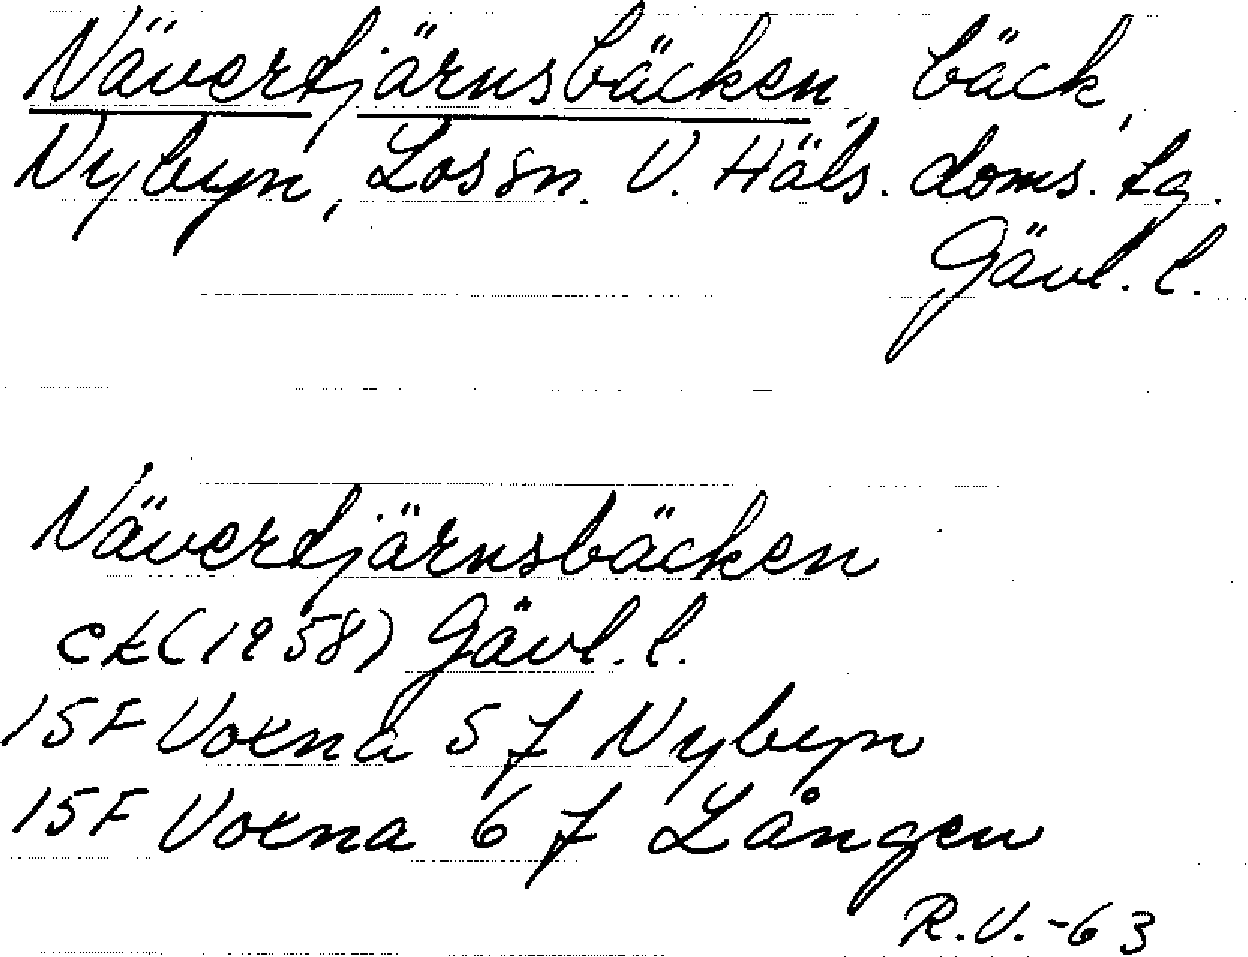 Nävertjärnsbäcken, bäck,
Nybyn, Los sn. V. Häls. doms. tg.
Gävl. l.
Nävertjärnsbäcken
ek (1958) Gävl. l.
15F Voxna 5 f Nybyn
15F Voxna 6 f Lången
R.V.-63